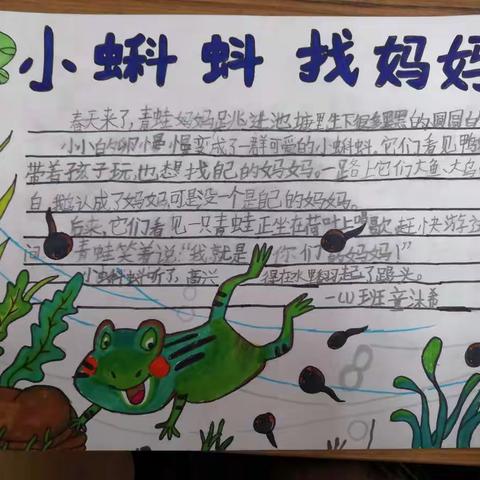 小蝌蚪找妈妈
春天来了,青蛙妈妈跳进池塘里生下很多黑的,圆圆的
小小的卵慢慢变成了一群可爱的小蝌蚪.它们看见鸭
带着孩子玩,也想找自己的妈妈。一路上它们大鱼、大乌
白鹅认成了妈妈,可是没一个是自己的妈妈。
后来,它们看见一只青蛙正坐在荷叶上唱歌,赶快游
问 青蛙笑着说:“我就是 你们的妈妈!”
小蝌蚪听了,高兴 得在水里翻起了跟头。
一(4)班